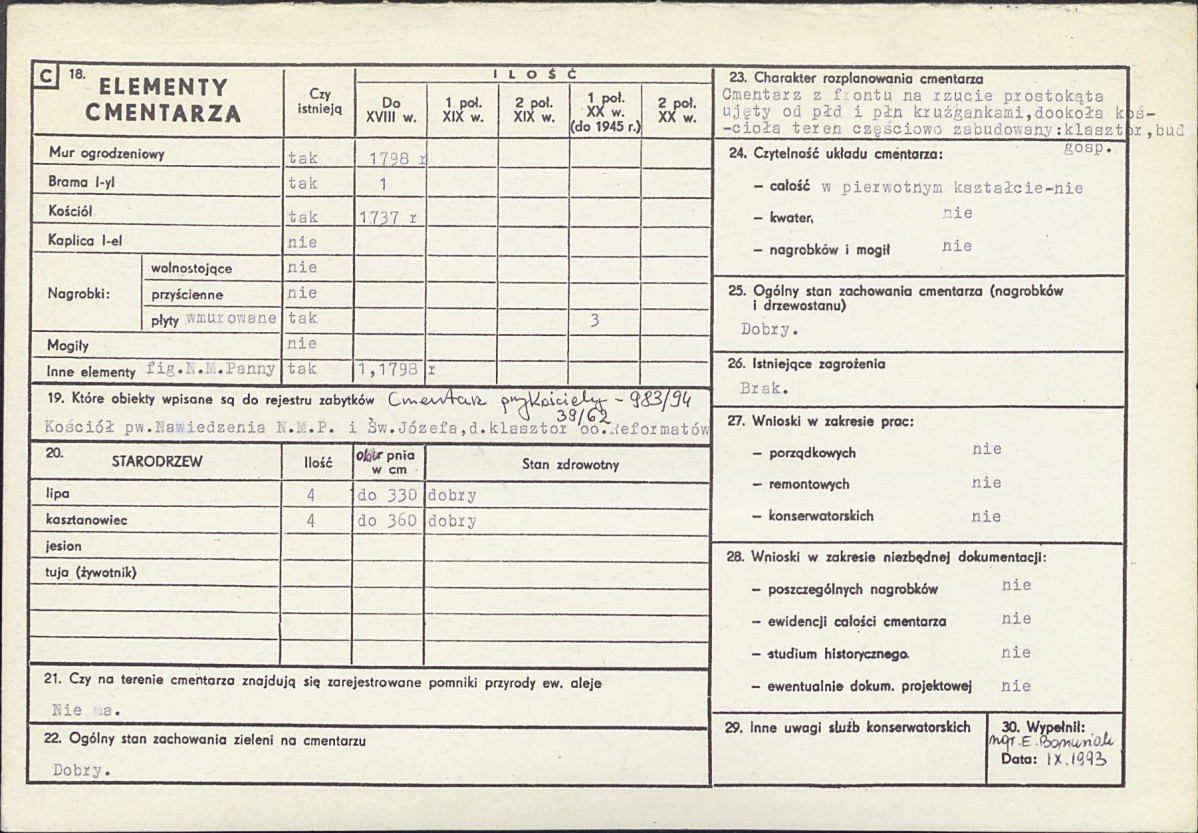 C 18. ELEMENTY CMENTARZA
Czy istnieją
ILOŚĆ
Do XVIII w.
1 poł. XIX w.
2 poł. XIX w.
1 poł. XX w. (do 1945 r.)
2 poł. XX w.
Mur ogrodzeniowy tak 1798 r
Brama I-yl tak 1
Kościół tak 1737 r
Kaplica I-el nie
Nagrobki: wolnostojące nie
przyścienne nie
płyty wmurowane tak 3
Mogiły nie
Inne elementy fig.N.M.Panny tak 1,1798 r
19. Które obiekty wpisane są do rejestru zabytków Cmentarz przykościelny - 983/94
39/62
Kościół pw.Nawiedzenia N.M.P. i Św.Józefa,d.klasztor oo.Reformatów
20. STARODRZEW Ilość obw pnia w cm Stan zdrowotny
lipa 4 do 330 dobry
kasztanowiec 4 do 360 dobry
jesion
tuja (żywotnik)
21. Czy na terenie cmentarza znajdują się zarejestrowane pomniki przyrody ew. aleje
Nie ma.
22. Ogólny stan zachowania zieleni na cmentarzu
Dobry.
23. Charakter rozplanowania cmentarza
Cmentarz z frontu na rzucie prostokąta
ujęty od płd i płn krużgankami,dookoła koś-
-cioła teren częściowo zabudowany:klasztor,bud
gosp.
24. Czytelność układu cmentarza:
– całość w pierwotnym kształcie-nie
– kwater, nie
– nagrobków i mogił nie
25. Ogólny stan zachowania cmentarza (nagrobków
i drzewostanu)
Dobry.
26. Istniejące zagrożenia
Brak.
27. Wnioski w zakresie prac:
– porządkowych nie
– remontowych nie
– konserwatorskich nie
28. Wnioski w zakresie niezbędnej dokumentacji:
– poszczególnych nagrobków nie
– ewidencji całości cmentarza nie
– studium historycznego. nie
– ewentualnie dokum. projektowej nie
29. Inne uwagi służb konserwatorskich
30. Wypełnił:
mgr. E.
Data: IX.1993